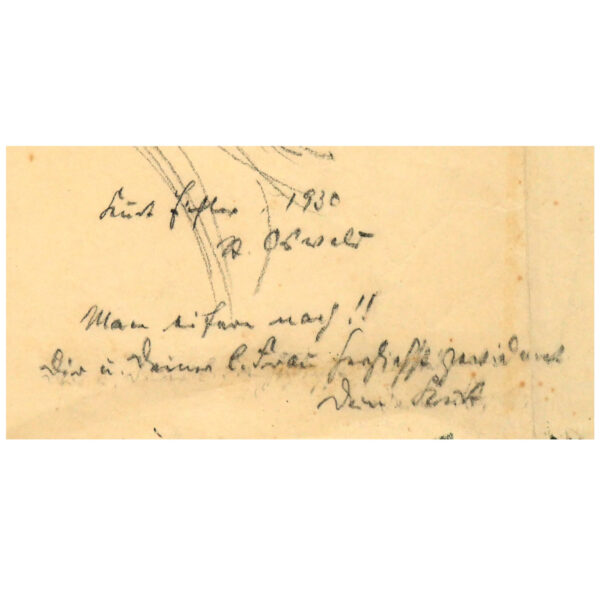 Kurt 1930
St. Oswald
Man eifere nach!!
Dir u. Deiner l. Frau herzlichst gewidmet
Dein Kurt.